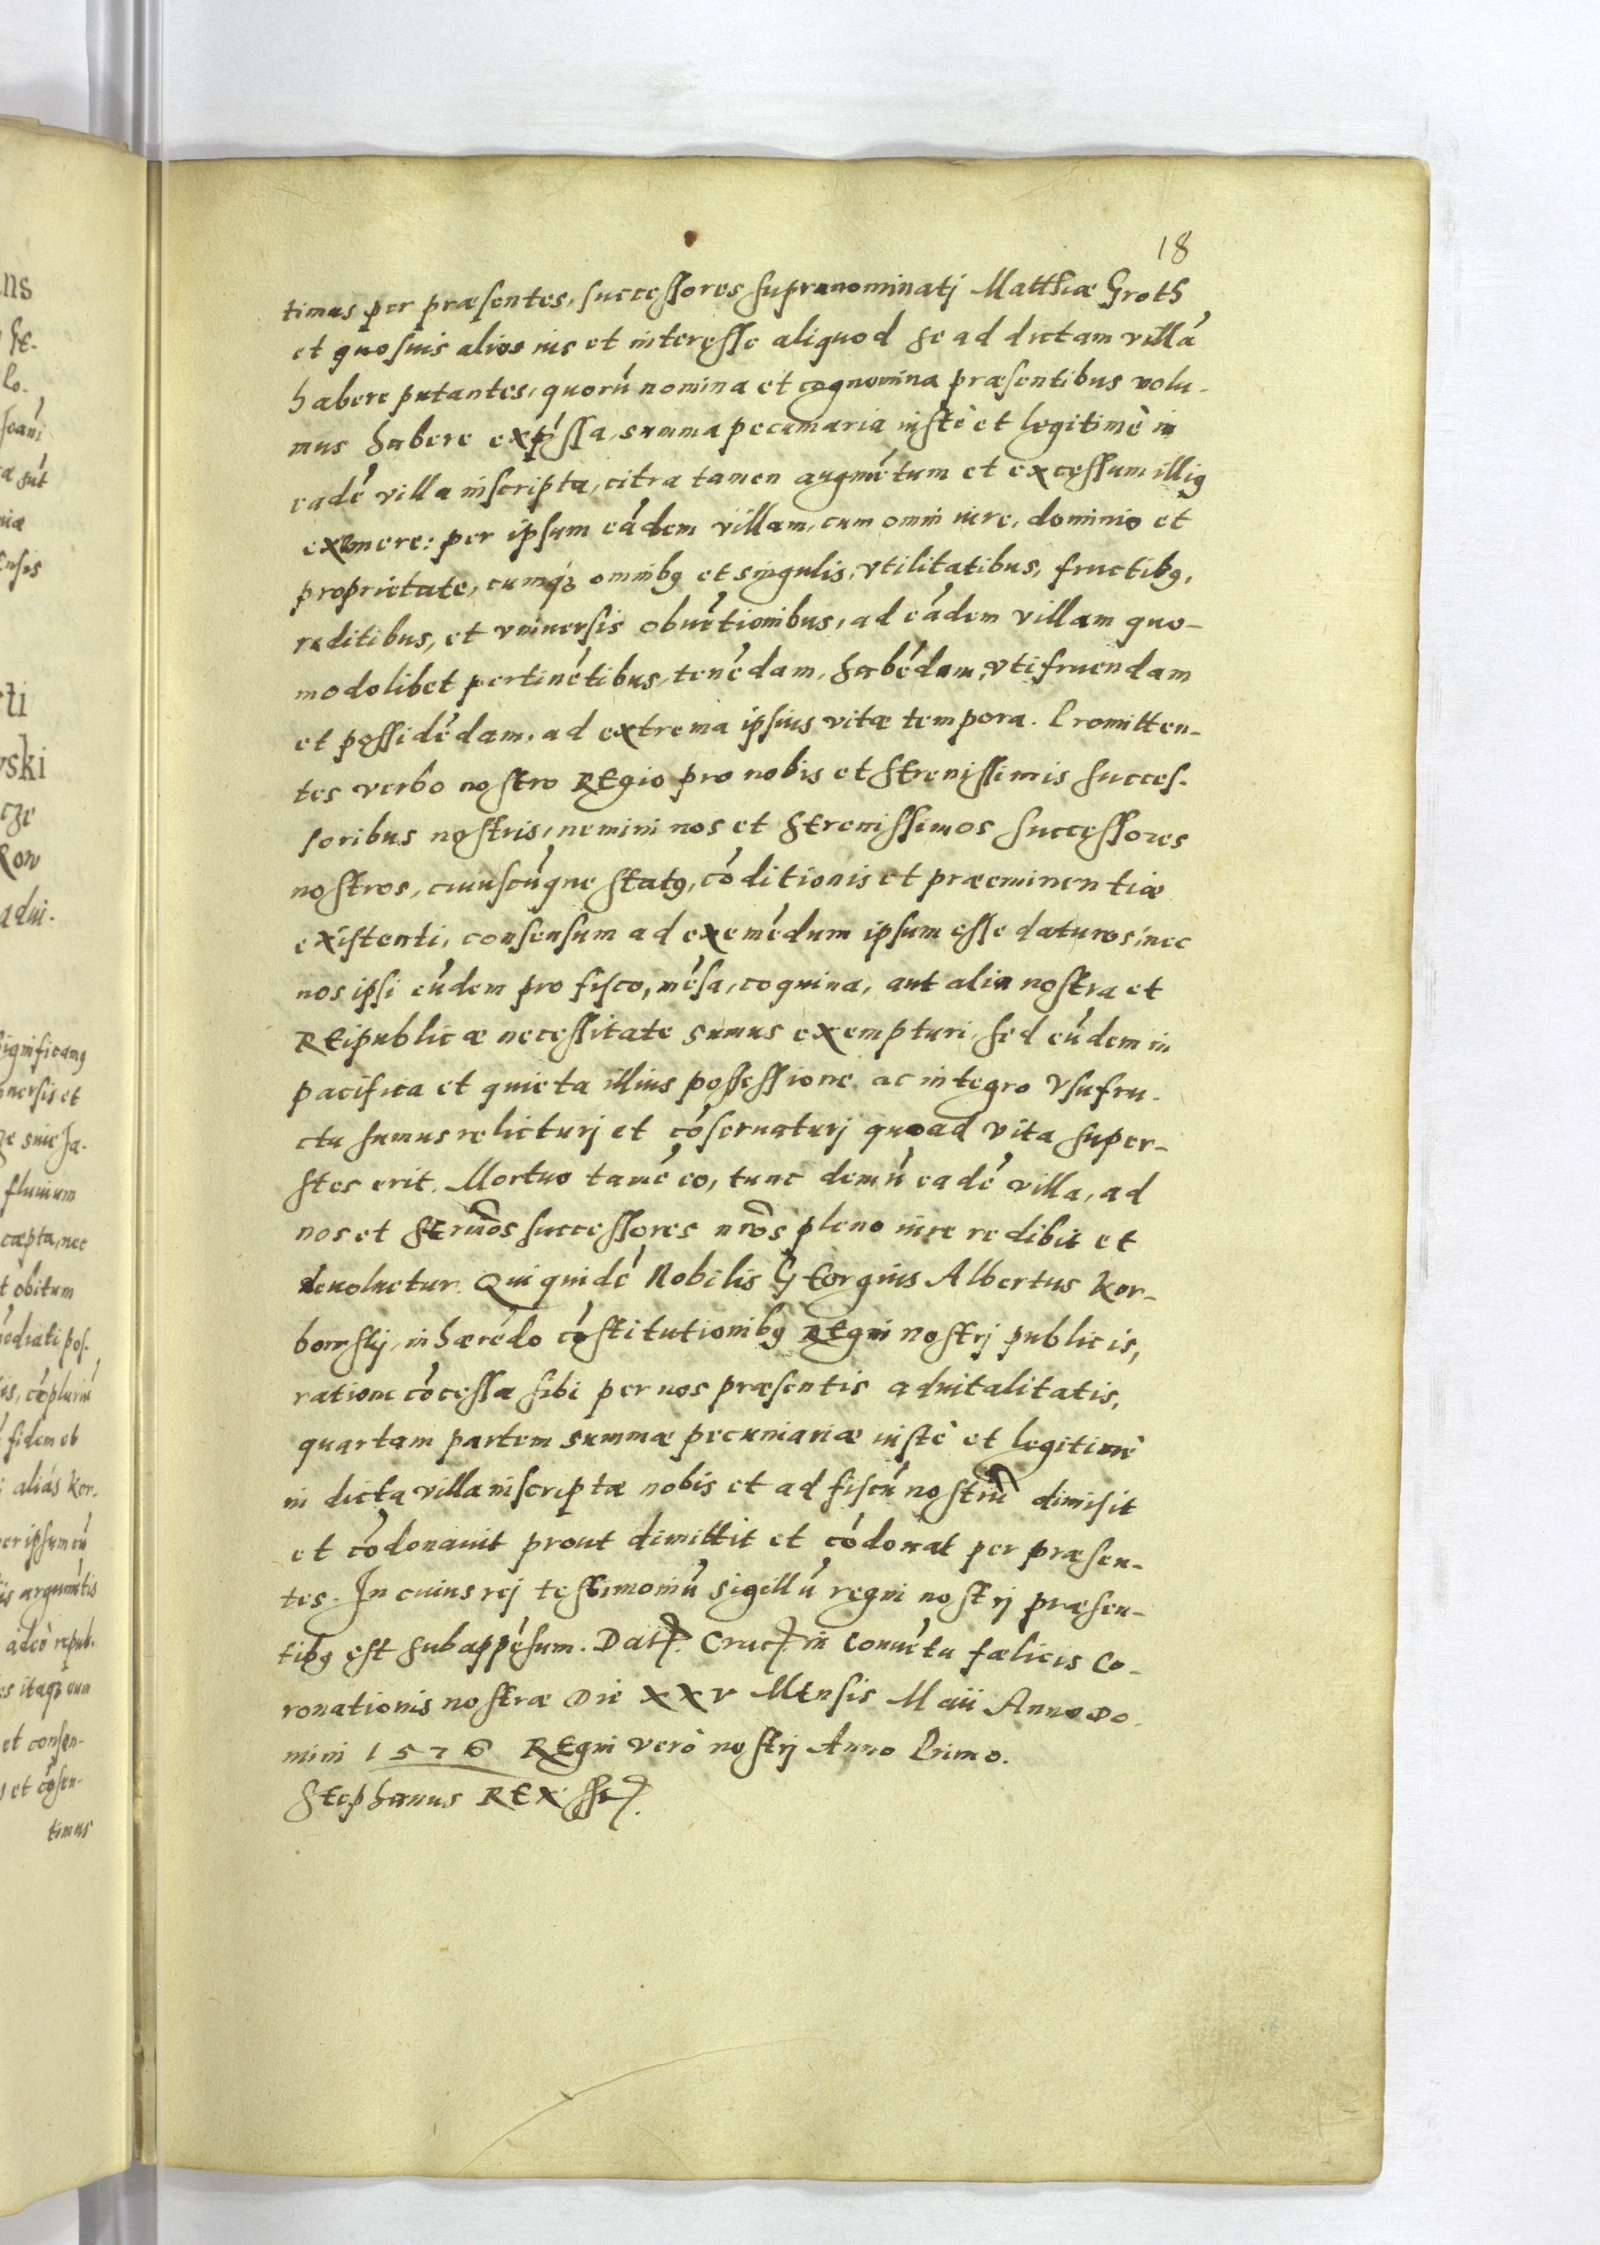 18
timus per præsentes, successores supranominatj Matthiæ Groth
et quosuis alios ius et interesse aliquod se ad dictam villā
habere putantes, quorū nomina et cognomina præsentibus volu-
mus habere expssa, summa pecuniaria iustè et legitimè in
eadē villa inscripta, citra tamen augmētum et excessum illig
eximere: per ipsum eādem villam, cum omni iure, dominio et
proprietate, cumqꝫ omnibꝰ et singulis, vtilitatibus, fructibꝰ,
reditibus, et vniuersis obuētionibus, ad eādem villam quo-
modolibet pertinētibus, tenēdam, habēdam, vtifruendam
et possidēdam, ad extrema ipsius vitæ tempora. Promitten-
tes verbo nostro REgio pro nobis et SErenissimis succes-
soribus nostris, nemini nos et SErenissimos successores
nostros, cuiuscūque statꝰ, cōditionis et præeminentiæ
existenti, consensum ad exemēdum ipsum esse daturos, nec
nos ipsi eūdem pro fisco, mēsa, coquina, aut alia nostra et
REipublicæ necessitate sumus exempturi, sed eūdem in
pacifica et quieta illius possessione ac integro vsufru-
ctu sumus relicturj et cōseruaturj quoad vita super-
stes erit. Mortuo tamē eo, tunc demū eadē villa, ad
nos et SErmōs successores nrōs pleno iure redibit et
deuoluetur. Qui quidē Nobilis GEorgius Albertus Kor-
bonsky, inhærēdo cōstitutionibꝰ REgni nostrj publicis,
ratione cōcessæ sibi per nos præsentis aduitalitatis,
quartam partem summæ pecuniariæ iustè et legitimè
in dicta villa inscriptæ nobis et ad fiscū nostrū dimisit
et cōdonauit prout dimittit et cōdonat per præsen-
tes. In cuius rej testimoniū sigillū regni nostrj præsen-
tibꝰ est subappēsum. Datꝭ. Cracꝭ. in Conuētu fælicis Co-
ronationis nostræ Die XXV MEnsis Maii Anno Do-
mini 1576 REgni verò nostrj Anno Primo.
Stephanus REX sstꝭ.